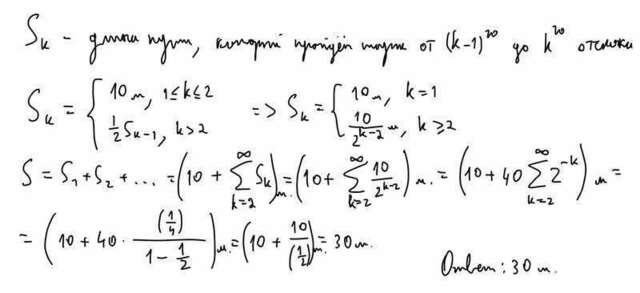 S_k - длина пути, который пройдёт мячик от (k-1)^го до k^го отскока
S_k = { 10 м, 1≤k≤2; 1/2 S_{k-1}, k>2 => S_k = { 10 м, k=1; 10/2^{k-2} м, k≥2
S = S_1 + S_2 + ... = (10 + ∑_{k=2}^{∞} S_k) м. = (10 + ∑_{k=2}^{∞} 10/2^{k-2}) м. = (10 + 40 ∑_{k=2}^{∞} 2^{-k}) м =
= (10 + 40 · (1/4)/(1 - 1/2)) м. = (10 + 10/(1/2)) м. = 30 м.
Ответ: 30 м.